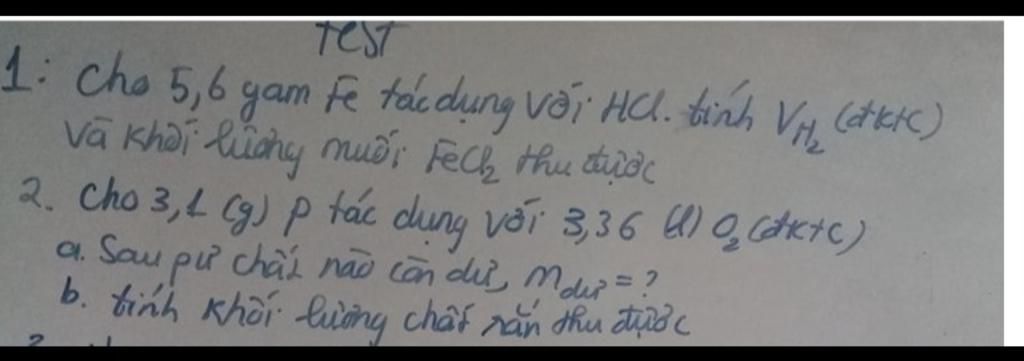 Test
1: Cho 5,6 gam Fe tác dụng với HCl. tính V_H₂ (đktc)
và khối lượng muối FeCl₂ thu được
2. Cho 3,1 (g) P tác dụng với 3,36 (l) O₂ (đktc)
a. Sau pư chất nào còn dư, m_dư = ?
b. tính khối lượng chất rắn thu được